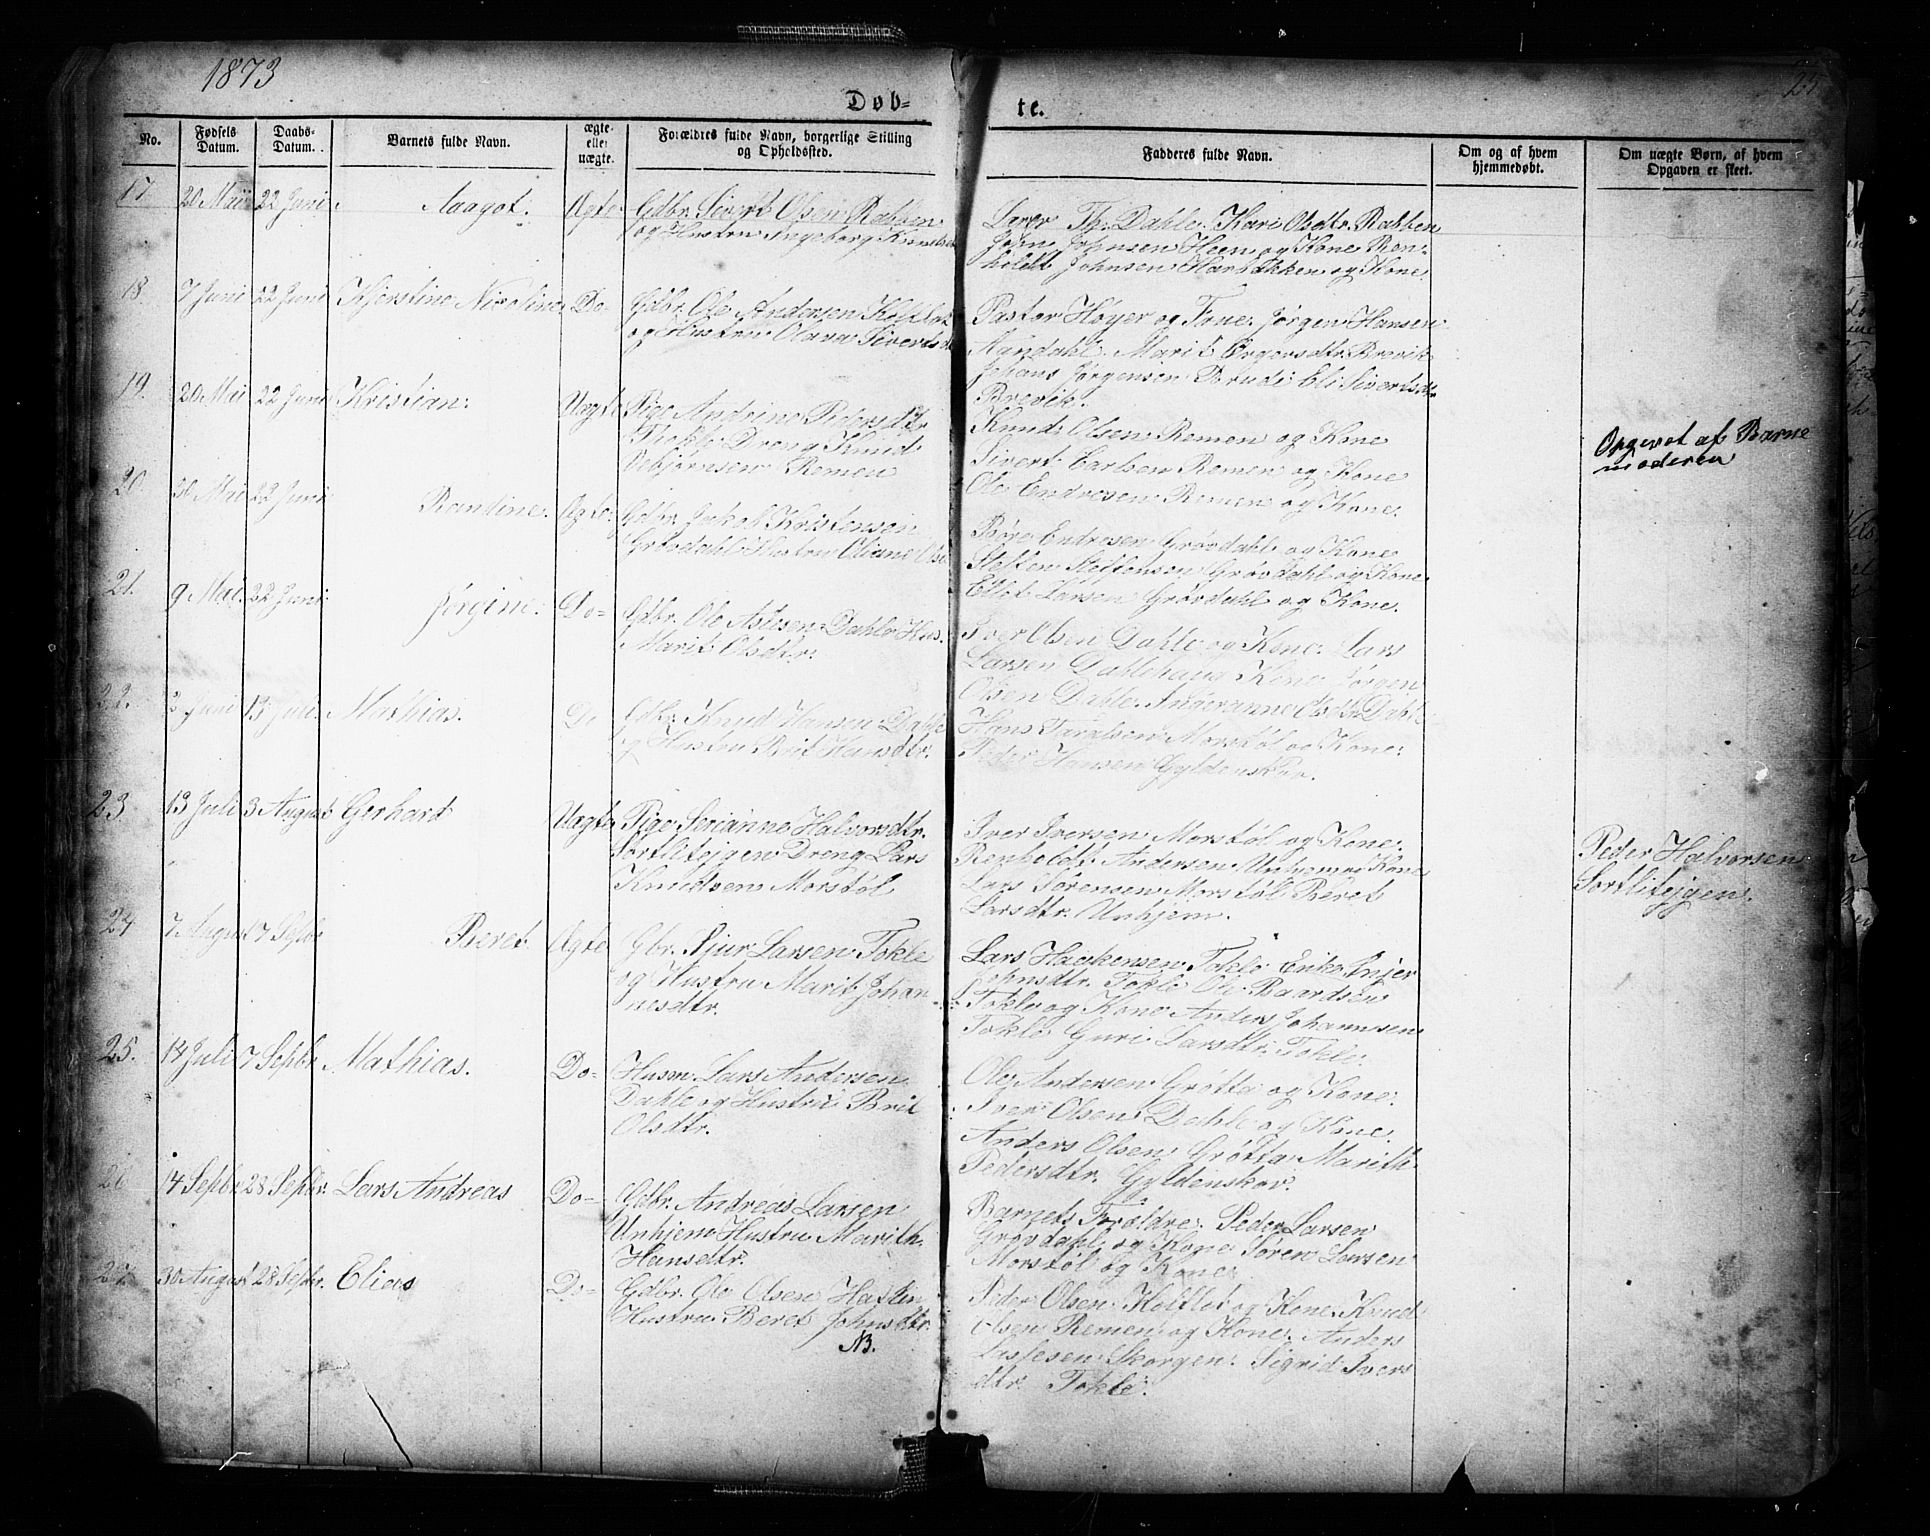 1873
Døb-
te.
No.
Fødsels Datum.
Daabs- Datum.
Barnets fulde Navn.
ægte eller uægte.
Forældres fulde Navn, borgerlige Stilling og Opholdssted.
Fadderes fulde Navn.
Om og af hvem hjemmedøbt.
Om uægte Børn, af hvem Opgaven er skeet.
17. 20 Mai 22 Juni Aagot. Ægte Gdbr. Sivert Olsen Rabben
og Hustru Ingeborg
Lærer Th. Dahle. Kari Olsdtr. Rabben
John Johnsen Heen og Kone Ren-
holdt Johnsen Harbakken og Kone.
18. 7 Juni 22 Juni Kjerstine Nicoline. Do- Gdbr. Ole Andersen
og Hustru Olava
Pastor Høyer og Frue. Jørgen Hansen
Mandahl. Marit Brevik
Johans Jørgensen Eli Sivertsdtr
Brevik.
19. 20 Mai 22 Juni Kristian. Uægte Pige Andrine Pedersdtr
Tokle Dreng Knud
Remen
Knud Olsen Remen og Kone
Sivert Carlsen Remen og Kone
Ole Endresen Remen og Kone.
Opgivet af Barne
moderen
20. Mai 22 Juni Randine. Ægte. Gdbr. Jakob Kristensen
Grøvdahl Hustru Oliane
Børe Endresen Grøvdahl og Kone
Steffen Steffensen Grøvdahl og Kone.
Larsen Grøvdahl og Kone.
21. 9 Mai. 22 Juni. Jørgine. Do- Gdbr. Ole Dahle Hus.
Marit Olsdtr.
Iver Olsen Dahle og Kone. Lars
Larsen Dahlehaug Kone Jørgen
Olsen Dahle. Olsdtr Dahle
22. 2 Juni 13 Juli. Mathias. Do Gdbr. Knud Hansen Dahle
og Hustru Brit Hansdtr.
Hans Morstøl og Kone.
Peder Hansen Gyldenskov.
23. 13 Juli 3 August Gerhard Uægte Pige Serianne Halvorsdtr.
Sortliteigen Dreng Lars
Knudsen Morstøl
Iver Iversen Morstøl og Kone.
Renholdt Andersen Unhjem og Kone
Lars Sørensen Morstøl Beret
Larsdtr. Unhjem.
Peder Halvorsen
Sortliteigen.
24 7 August 7 Septbr Beret. Ægte Gbr. Sjur Larsen Tokle
og Hustru Marit Johan-
nesdtr.
Lars Haakensen Tokle
Johnsdtr. Tokle Ole Baardsen
Tokle og Kone Anders Johannsen
Tokle Guri Larsdtr. Tokle.
25. 14 Juli 7 Septbr Mathias. Do- Husm. Lars Andersen
Dahle og Hustru Brit
Olsdtr.
Ole Andersen Grøtta og Kone.
Iver Olsen Dahle og Kone.
Anders Olsen Grøtta Marith
Pedersdtr. Gyldenskov.
26 14 Septbr 28 Septbr. Lars Andreas Do- Gdbr. Andreas Larsen
Unhjem Hustru Marith
Hansdtr.
Barnets Forældre. Peder Larsen
Grøvdahl og Kone Søren Larsen
Morstøl og Kone.
27. 30 August 28 Septbr. Elias Do- Gdbr. Ole Olsen Hatlen
Hustru Beret Johnsdtr.
NB.
Peder Olsen og Kone. Knud
Olsen Remen og Kone. Anders
Skorgen. Sigrid Ivers
dtr. Tokle.